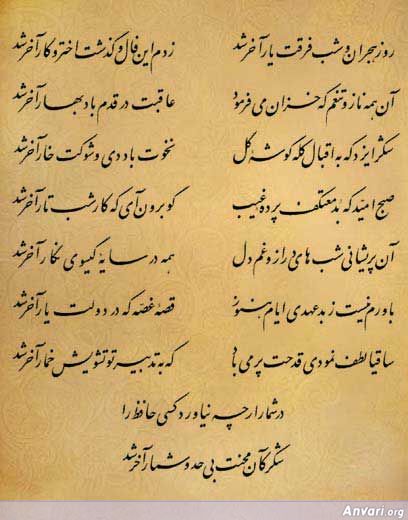 روز هجران و شب فرقت یار آخر شد زدم این فال و گذشت اختر و کار آخر شد
آن همه ناز و تنعّم که خزان می فرمود عاقبت در قدم باد بهار آخر شد
شکر ایزد که به اقبال کله گوشهٔ گل نخوت باد دی و شوکت خار آخر شد
صبح امید که بد معتکف پرده غیب گو برون آی که کار شب تار آخر شد
آن پریشانی شب های دراز و غم دل همه در سایهٔ گیسوی نگار آخر شد
باورم نیست ز بد عهدی ایام هنوز قصهٔ غصّه که در دولت یار آخر شد
ساقیا لطف نمودی قدحت پر می باد که به تدبیر تو تشویش خمار آخر شد
در شمار ار چه نیاورد کسی حافظ را
شکر کآن محنت بی حد و شمار آخر شد
Anvari.org